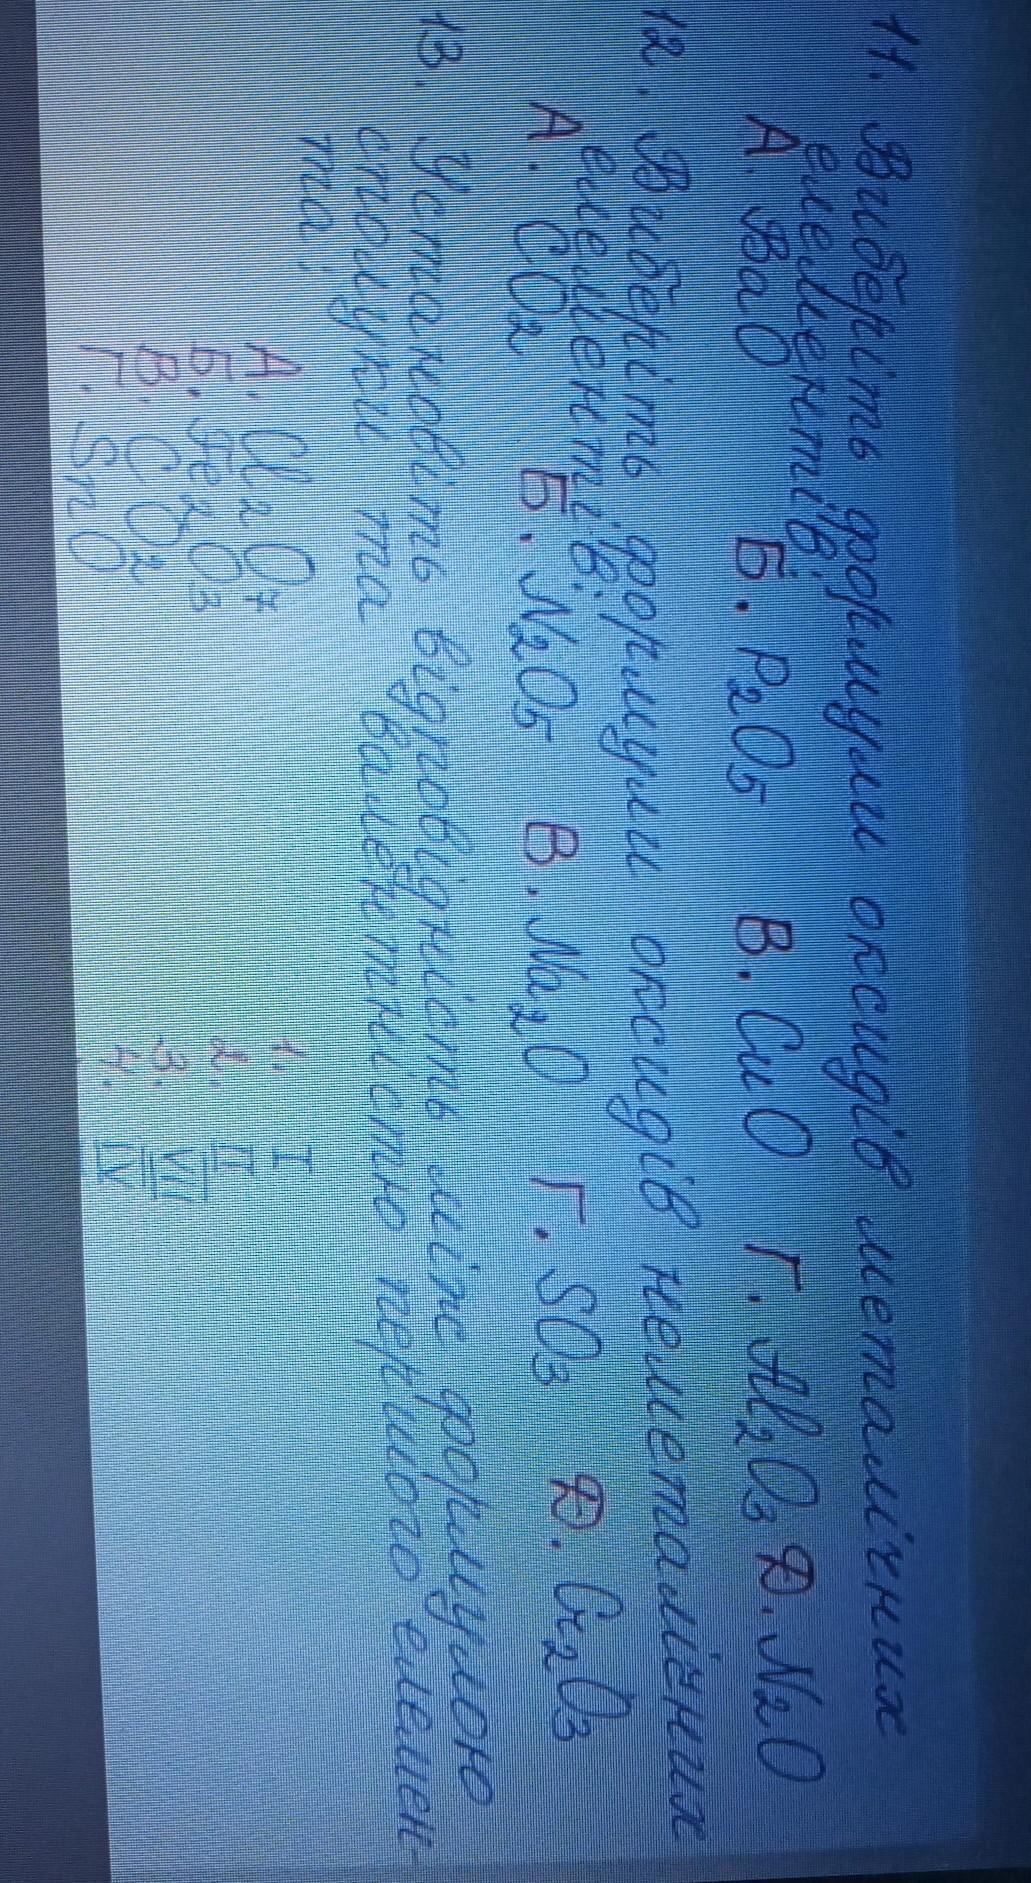 11. Виберіть формули оксидів металічних
елементів:
А. BaO Б. P₂O₅ В. CuO Г. Al₂O₃ Д. N₂O
12. Виберіть формули оксидів неметалічних
елементів:
А. CO₂ Б. N₂O₅ В. Na₂O Г. SO₃ Д. Cr₂O₃
13. Установіть відповідність між формулою
сполуки та валентністю першого елемен-
та:
А. Cl₂O₇ 1. I
Б. Fe₂O₃ 2. III
В. CO₂ 3. VII
Г. SnO 4. IV